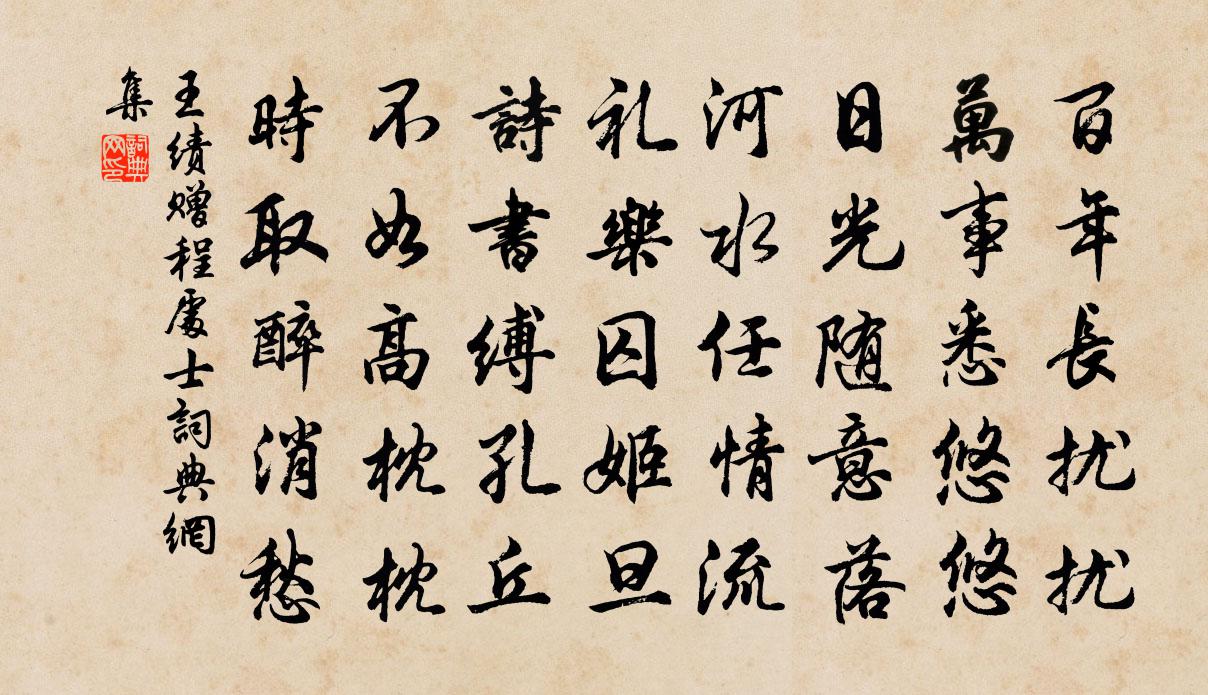 百年長扰扰
萬事悉悠悠
日光随意落
河水任情流
礼樂囚姬旦
詩書縛孔丘
不如高枕枕
時取醉消愁
王績赠程處士詞典網
集
詞典
网印